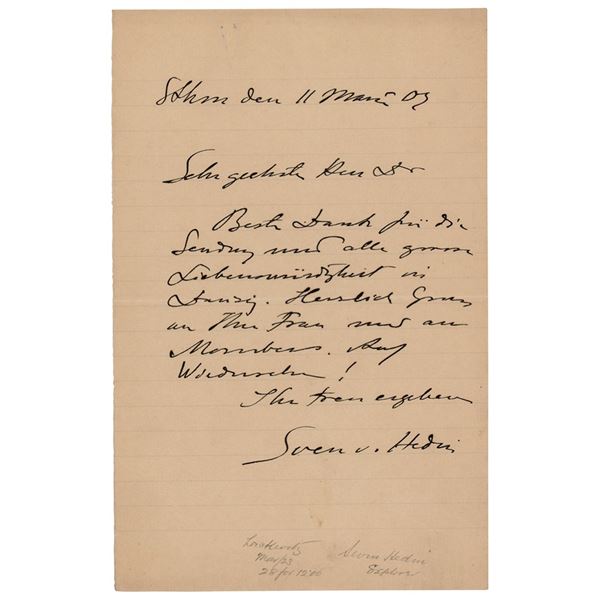 Sthm den 11 März 09
Sehr geehrter Herr Dr
Beste Dank für die
Sendung und alle grosse
Liebenswürdigkeit in
Danzig. Herzlich Gruss
an Ihre Frau und an
Auf
Wiedersehen!
Ihr treu ergeben
Sven v. Hedin
Mar/23
28 for 1200
Sven Hedin
Explorer